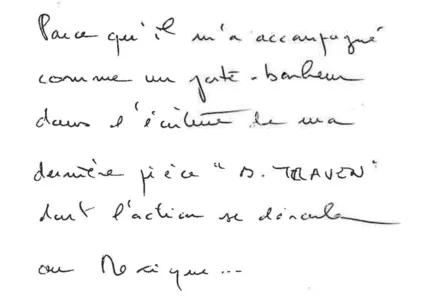 Parce qu'il m'a accompagné
comme un porte-bonheur
dans l'écriture de ma
dernière pièce "B. TRAVEN"
dont l'action se déroule
au Mexique...